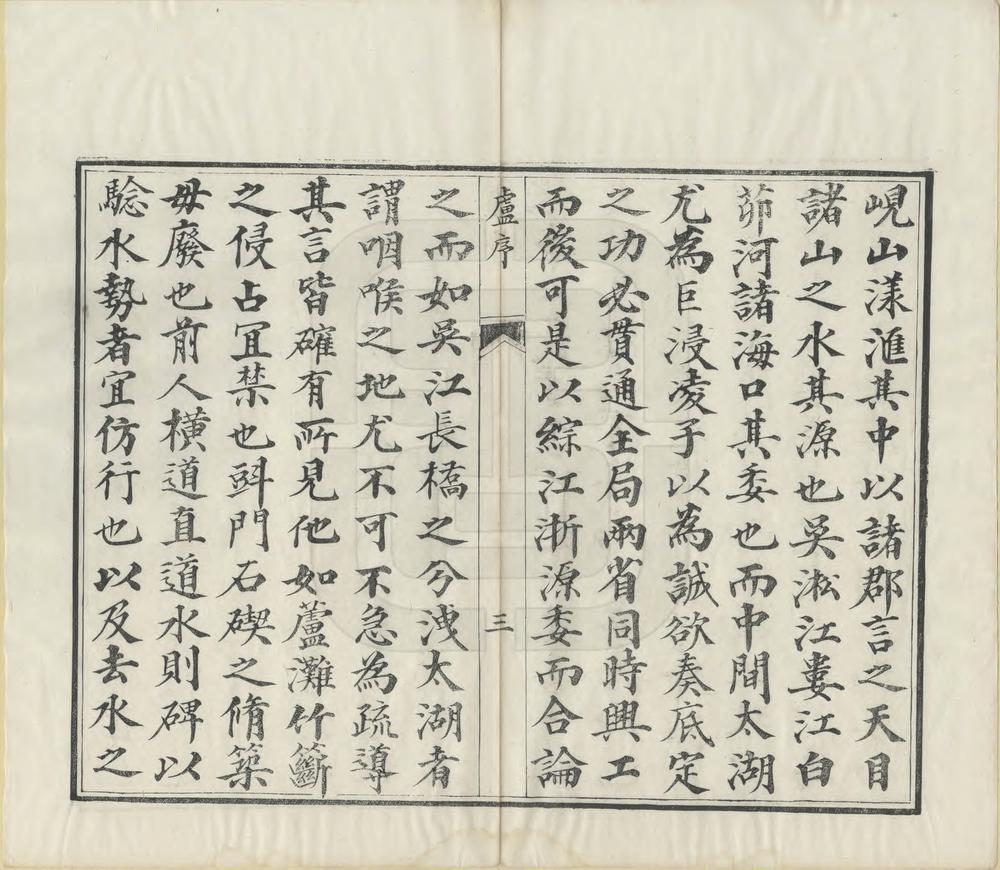 峴山漾滙其中以諸郡言之天目
諸山之水其源也吳淞江婁江白
茆河諸海口其委也而中間太湖
尤為巨浸凌子以為誠欲奏底定
之功必貫通全局兩省同時興工
而後可是以綜江浙源委而合論
盧序
三
之而如吳江長橋之分洩太湖者
謂咽喉之地尤不可不急為疏導
其言皆確有所見他如蘆灘竹籪
之侵占冝禁也斣門石碶之脩築
毋廢也前人橫道直道水則碑以
騐水勢者宜仿行也以及去水之